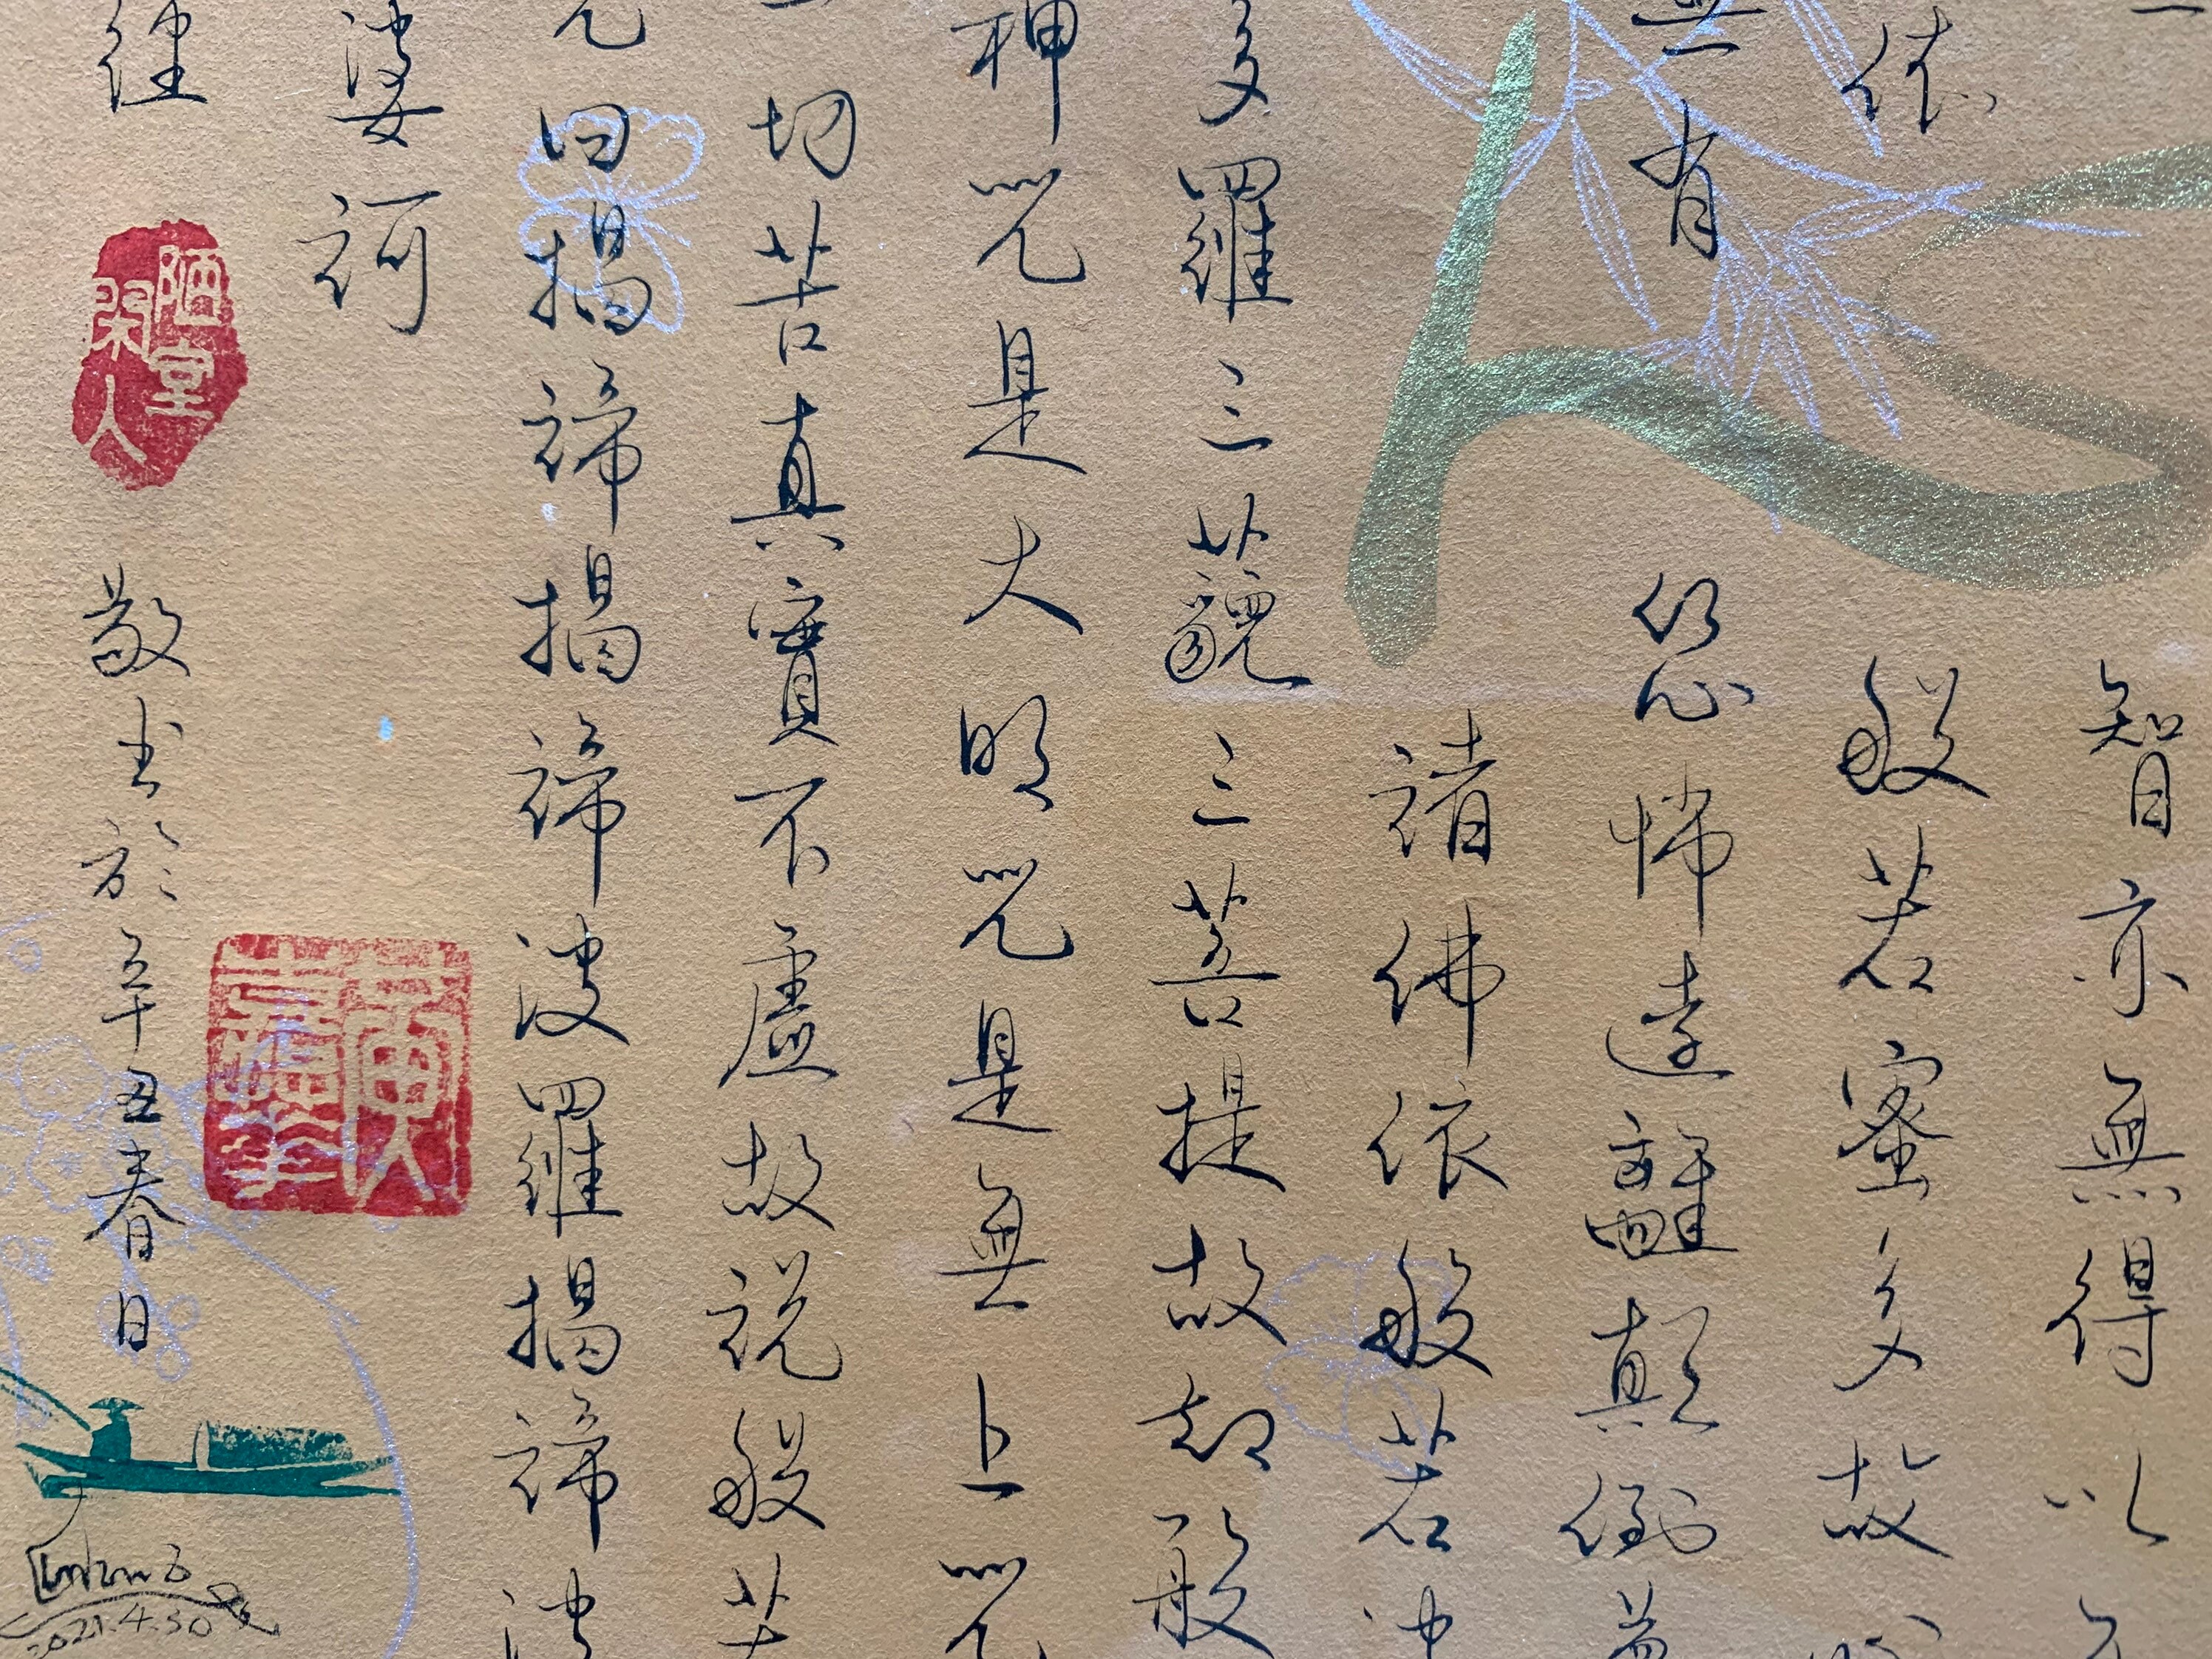 智亦無得以
依般若蜜多故
無有恐怖遠離顛倒夢
諸佛依般若波
多羅三藐三菩提故知般
神咒是大明咒是無上咒
一切苦真實不虛故說般若
咒曰揭諦揭諦波羅揭諦波
婆訶
經
陋室閑人
敬書於辛丑春日
2021.4.30